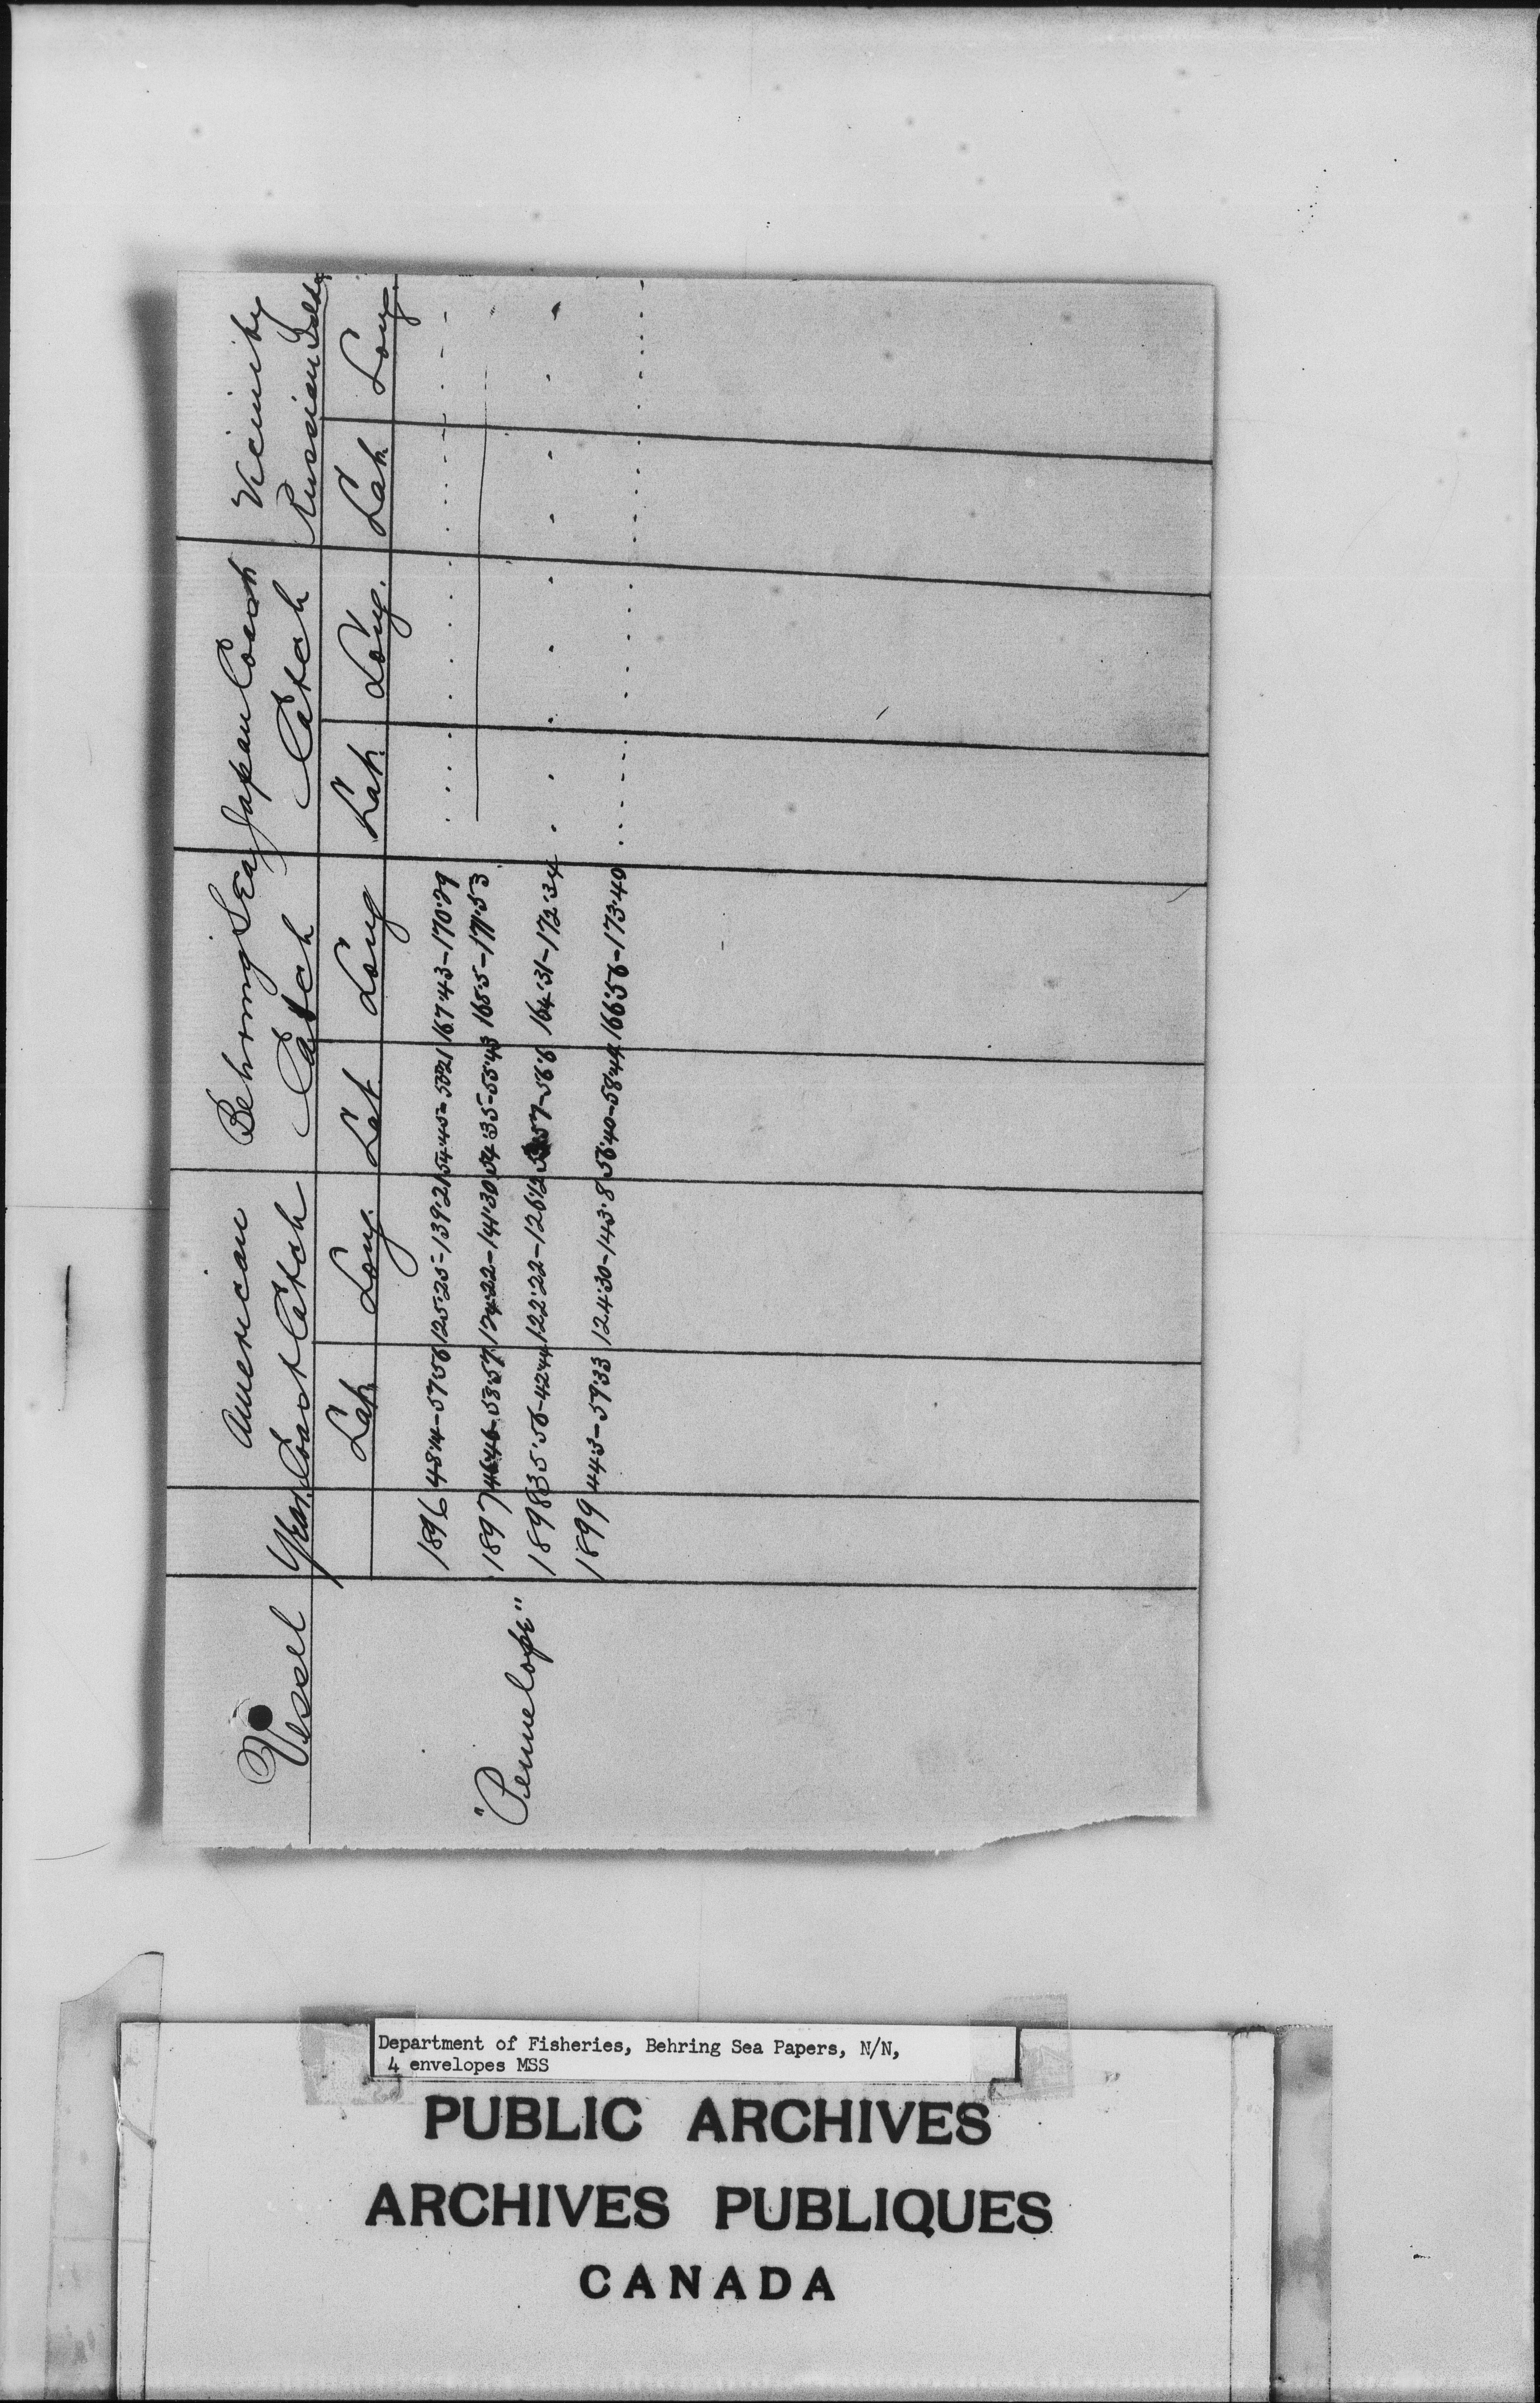 Vessel Year American Behring Sea Japan Coast Vicinity
Coast Catch Catch Catch Russian Islds
Lat. Long. Lat. Long Lat. Long. Lat. Long.
1896 48.14-57.56 125.25-139.21 54.45-55.21 167.43-170.29
"Pennelope" 1897 46.46-53.57 124.22-141.30 54.35-55.43 165.5-171.53
1898 35.56-42.44 122.22-126.12 57-56.6 164.31-172.34
1899 44.3-59.33 124.30-143.8 56.40-58.44 166.56-173.40
Department of Fisheries, Behring Sea Papers, N/N,
4 envelopes MSS
PUBLIC ARCHIVES
ARCHIVES PUBLIQUES
CANADA